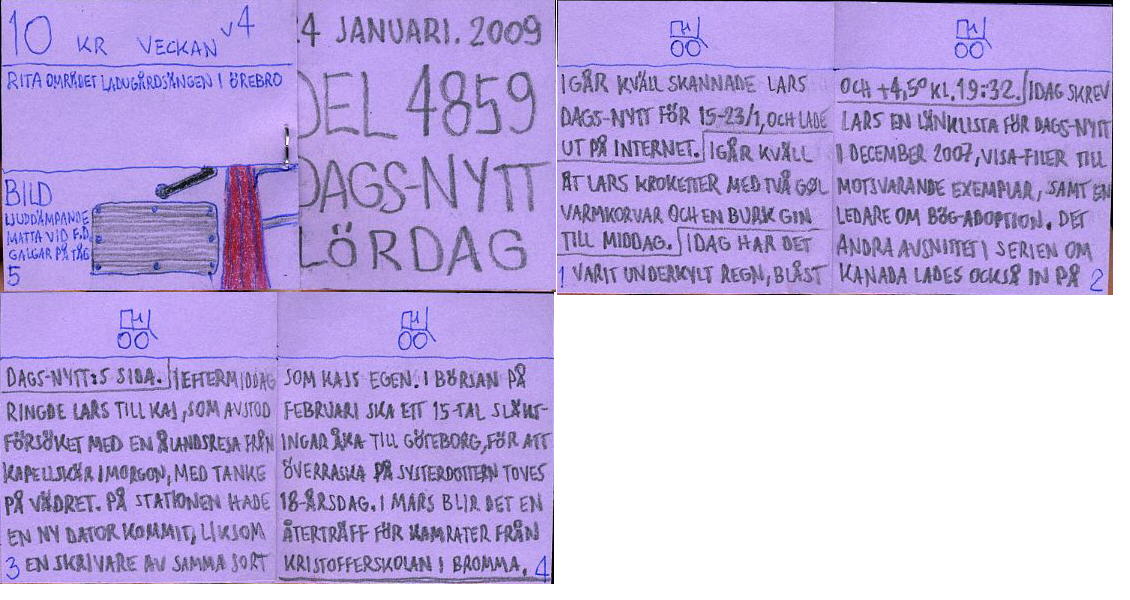 10 KR VECKAN V4
RITA OMRÅDET LADUGÅRDSÄNGEN I ÖREBRO
BILD
LJUDDÄMPANDE
MATTA VID F.D.
GALGAR PÅ TÅG
5
24 JANUARI. 2009
DEL 4859
DAGS-NYTT
LÖRDAG
IGÅR KVÄLL SKANNADE LARS
DAGS-NYTT FÖR 15-23/1, OCH LADE
UT PÅ INTERNET. IGÅR KVÄLL
ÅT LARS KROKETTER MED TVÅ GØL
VARMKORVAR OCH EN BURK GIN
TILL MIDDAG. IDAG HAR DET
1 VARIT UNDERKYLT REGN, BLÅST
OCH +4,5° KL. 19:32. IDAG SKREV
LARS EN LÄNKLISTA FÖR DAGS-NYTT
I DECEMBER 2007, VISA-FILER TILL
MOTSVARANDE EXEMPLAR, SAMT EN
LEDARE OM BÖG-ADOPTION. DET
ANDRA AVSNITTET I SERIEN OM
KANADA LADES OCKSÅ IN PÅ 2
DAGS-NYTT:S SIDA. I EFTERMIDDAG
RINGDE LARS TILL KAJ, SOM AVSTOD
FÖRSÖKET MED EN ÅLANDSRESA FRÅN
KAPELLSKÄR IMORGON, MED TANKE
PÅ VÄDRET. PÅ STATIONEN HADE
EN NY DATOR KOMMIT, LIKSOM
3 EN SKRIVARE AV SAMMA SORT
SOM KAJS EGEN. I BÖRJAN PÅ
FEBRUARI SKA ETT 15-TAL SLÄKT-
INGAR ÅKA TILL GÖTEBORG, FÖR ATT
ÖVERRASKA PÅ SYSTERDOTTERN TOVES
18-ÅRSDAG. I MARS BLIR DET EN
ÅTERTRÄFF FÖR KAMRATER FRÅN
KRISTOFFERSKOLAN I BROMMA. 4